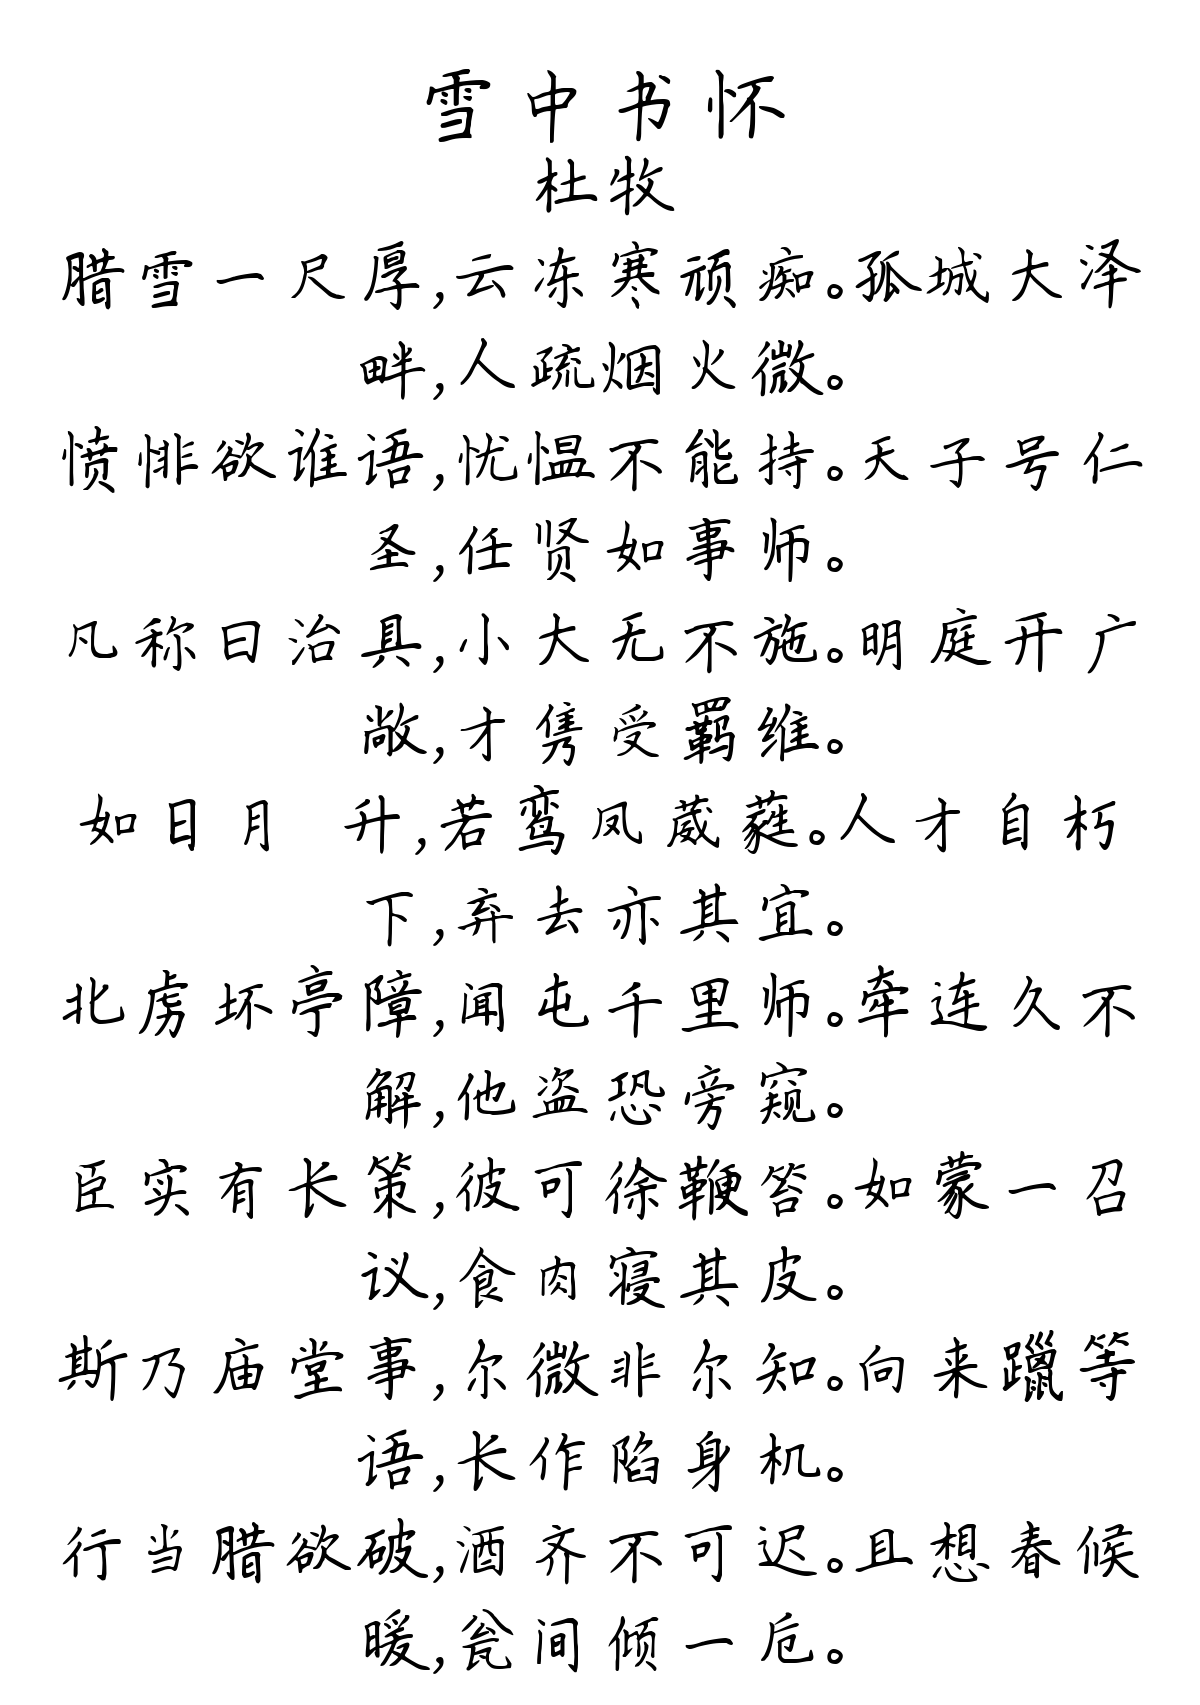 雪中书怀
杜牧
腊雪一尺厚,云冻寒顽痴。孤城大泽
畔,人疏烟火微。
愤悱欲谁语,忧愠不能持。天子号仁
圣,任贤如事师。
凡称曰治具,小大无不施。明庭开广
敞,才隽受羁维。
如日月 升,若鸾凤葳蕤。人才自朽
下,弃去亦其宜。
北虏坏亭障,闻屯千里师。牵连久不
解,他盗恐旁窥。
臣实有长策,彼可徐鞭笞。如蒙一召
议,食肉寝其皮。
斯乃庙堂事,尔微非尔知。向来躐等
语,长作陷身机。
行当腊欲破,酒齐不可迟。且想春候
暖,瓮间倾一卮。